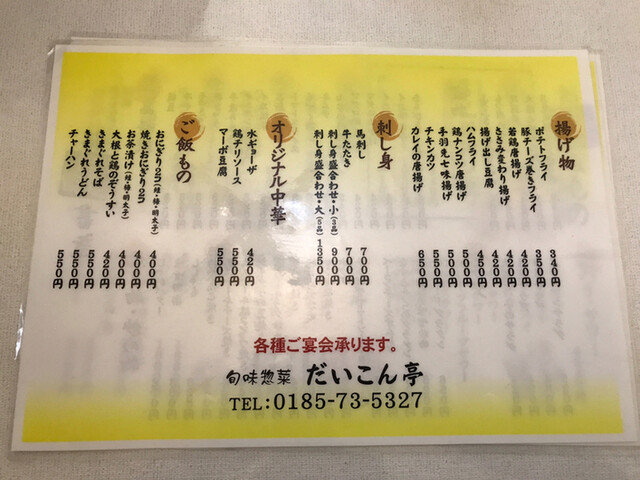 揚げ物
ポテトフライ 340円
豚チーズ巻きフライ 350円
若鶏唐揚げ 420円
ささみ変わり揚げ 420円
揚げ出し豆腐 420円
ハムフライ 450円
鶏ナンコツ唐揚げ 500円
手羽先七味揚げ 500円
チキンカツ 550円
カレイの唐揚げ 650円
刺し身
馬刺し 700円
牛たたき 700円
刺し身盛合わせ・小(3品) 900円
刺し身盛合わせ・大(5品) 1350円
オリジナル中華
水ギョーザ 420円
鶏チリソース 550円
マーボ豆腐 550円
ご飯もの
おにぎり2コ(鮭・梅・明太子) 400円
焼きおにぎり2コ 400円
お茶漬け(鮭・梅・明太子) 400円
大根と鶏のぞうすい 420円
きまぐれそば 550円
きまぐれうどん 550円
チャーハン 550円
各種ご宴会承ります。
旬味惣菜 だいこん亭
TEL:0185-73-5327